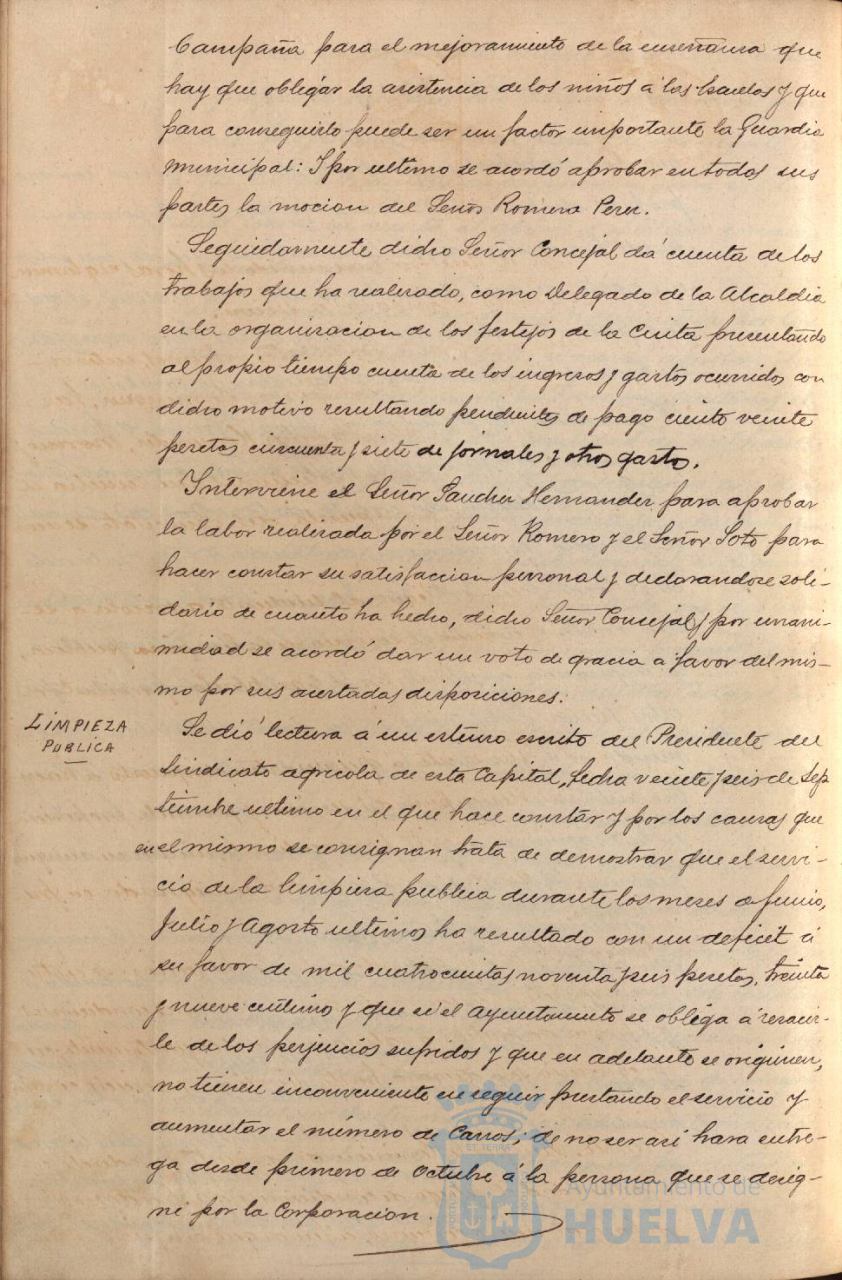 Campaña para el mejoramiento de la enseñanza que
hay que obligar la asistencia de los niños á las Escuelas y que
para conseguirlo puede ser un factor importante la Guardia
municipal: Y por ultimo se acordó aprobar en todas sus
partes la mocion del Señor Romero Perez.
Seguidamente dicho Señor Concejal dá cuenta de los
trabajos que ha realizado, como Delegado de la Alcaldia
en la organizacion de los festejos de la Cinta presentando
al propio tiempo cuenta de los ingresos y gastos ocurridos con
dicho motivo resultando pendientes de pago ciento veinte
pesetas cincuenta y siete de jornales y otros gastos.
Interviene el Señor Sanchez Hernandez para aprobar
la labor realizada por el Señor Romero y el Señor Soto para
hacer constar su satisfaccion personal y declarandose soli-
dario de cuanto ha hecho, dicho Señor Concejal y por unani-
midad se acordó dar un voto de gracia a favor del mis-
mo por sus acertadas disposiciones.
LIMPIEZA
PUBLICA
Se dió lectura á un extenso escrito del Presidente del
Sindicato agricola de esta Capital, fecha veinte y seis de Sep
tiembre ultimo en el que hace constar y por las causas que
en el mismo se consignan trata de demostrar que el servi-
cio de la limpieza publica durante los meses de Junio,
Julio y Agosto ultimos ha resultado con un deficit á
su favor de mil cuatrocientas noventa y seis pesetas, treinta
y nueve centimo y que si el Ayuntamiento se obliga á resarcir-
le de los perjuicios sufridos y que en adelante se originen,
no tienen inconveniente en seguir prestando el servicio y
aumentar el número de Carros; de no ser asi hara entre-
ga desde primero de Octubre á la persona que se desig-
ne por la Corporacion.
Ayuntamiento de
HUELVA